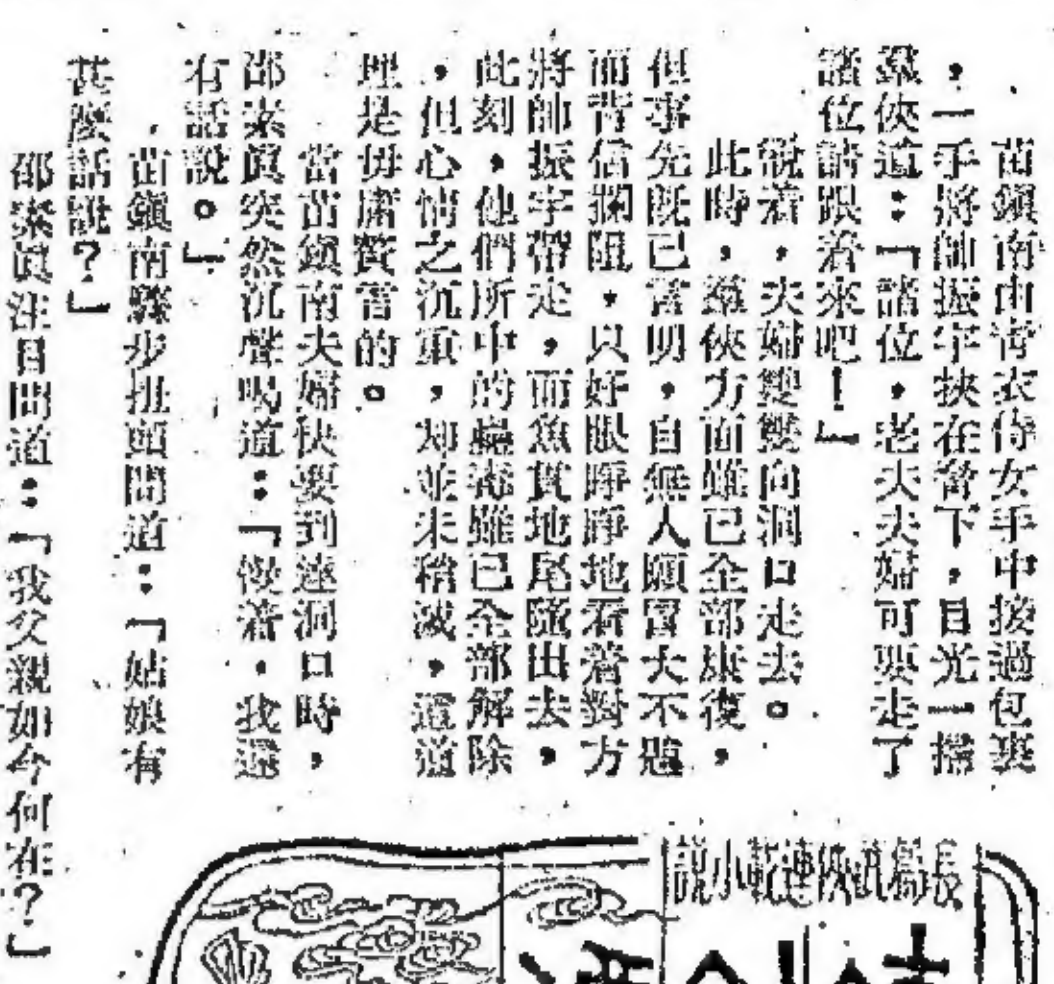 苗鎮南由青衣侍女手中接過包裹
，一手將帥振宇挾在脅下，目光一掃
羣俠道：「諸位，老夫夫婦可要走了
諸位請跟着來吧！」
說着，夫婦雙雙向洞口走去。
此時，羣俠方面雖已全部康復，
但事先既已言明，自無人願冒大不韙
而背信攔阻，只好眼睜睜地看着對方
將帥振宇帶走，而魚貫地尾隨出去，
此刻，他們所中的蠱毒雖已全部解除
，但心情之沉重，却並未稍減，這道
理是毋庸贅言的。
當苗鎮南夫婦快要到達洞口時，
邵素眞突然沉聲喝道：「慢着，我還
有話說。」
苗鎮南驟步扭頭問道：「姑娘有
甚麼話說？」
邵素眞注目問道：「我父親如今何在？」
長篇武俠連載小說